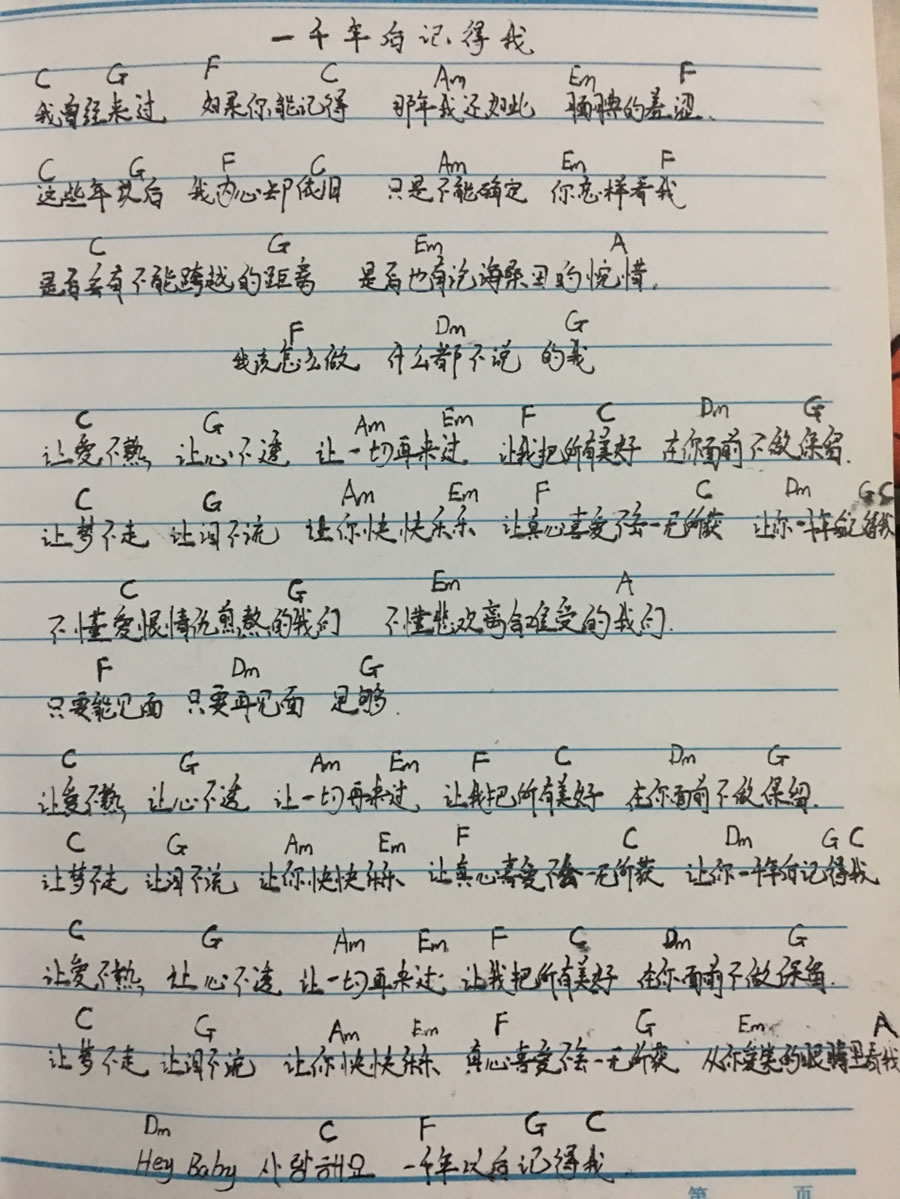 一千年后记得我
C G F C Am Em F
我曾经来过 如果你能记得 那年我还如此 腼腆的羞涩.
C G F C Am Em F
这些年以后 我内心却依旧 只是不能确定 你怎样看我
C G Em A
是否会有不能跨越的距离 是否也有沧海桑田的惋惜.
F Dm G
我该怎么做 什么都不说 的我
C G Am Em F C Dm G
让爱不熟, 让心不透 让一切再来过 让我把所有美好 在你面前不做保留.
C G Am Em F C Dm G C
让梦不走 让泪不流 让你快快乐乐 让真心喜爱不会一无所获 让你一千年后记得我
C G Em A
不懂爱恨情仇煎熬的我们 不懂悲欢离合难受的我们.
F Dm G
只要能见面 只要再见面 足够.
C G Am Em F C Dm G
让爱不熟, 让心不透 让一切再来过, 让我把所有美好 在你面前不做保留.
C G Am Em F C Dm G C
让梦不走 让泪不流 让你快快乐乐 让真心喜爱不会一无所获 让你一千年后记得我
C G Am Em F C Dm G
让爱不熟, 让心不透 让一切再来过 让我把所有美好 在你面前不做保留.
C G Am Em F G Em A
让梦不走 让泪不流 让你快快乐乐 真心喜爱不会一无所获 从你爱笑的眼睛里看我
Dm C F G C
Hey Baby 사랑해요 一千年以后记得我.
第 页